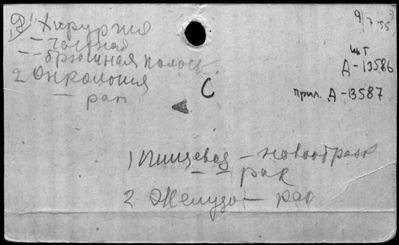 1) Хирургия
— частная
— брюшная полость
2 Онкология
— рак
9/7 35
шт
Д-13586
прил. Д-13587
С
1 Пищевод — новообраз
— — рак
2 Желудо — рак